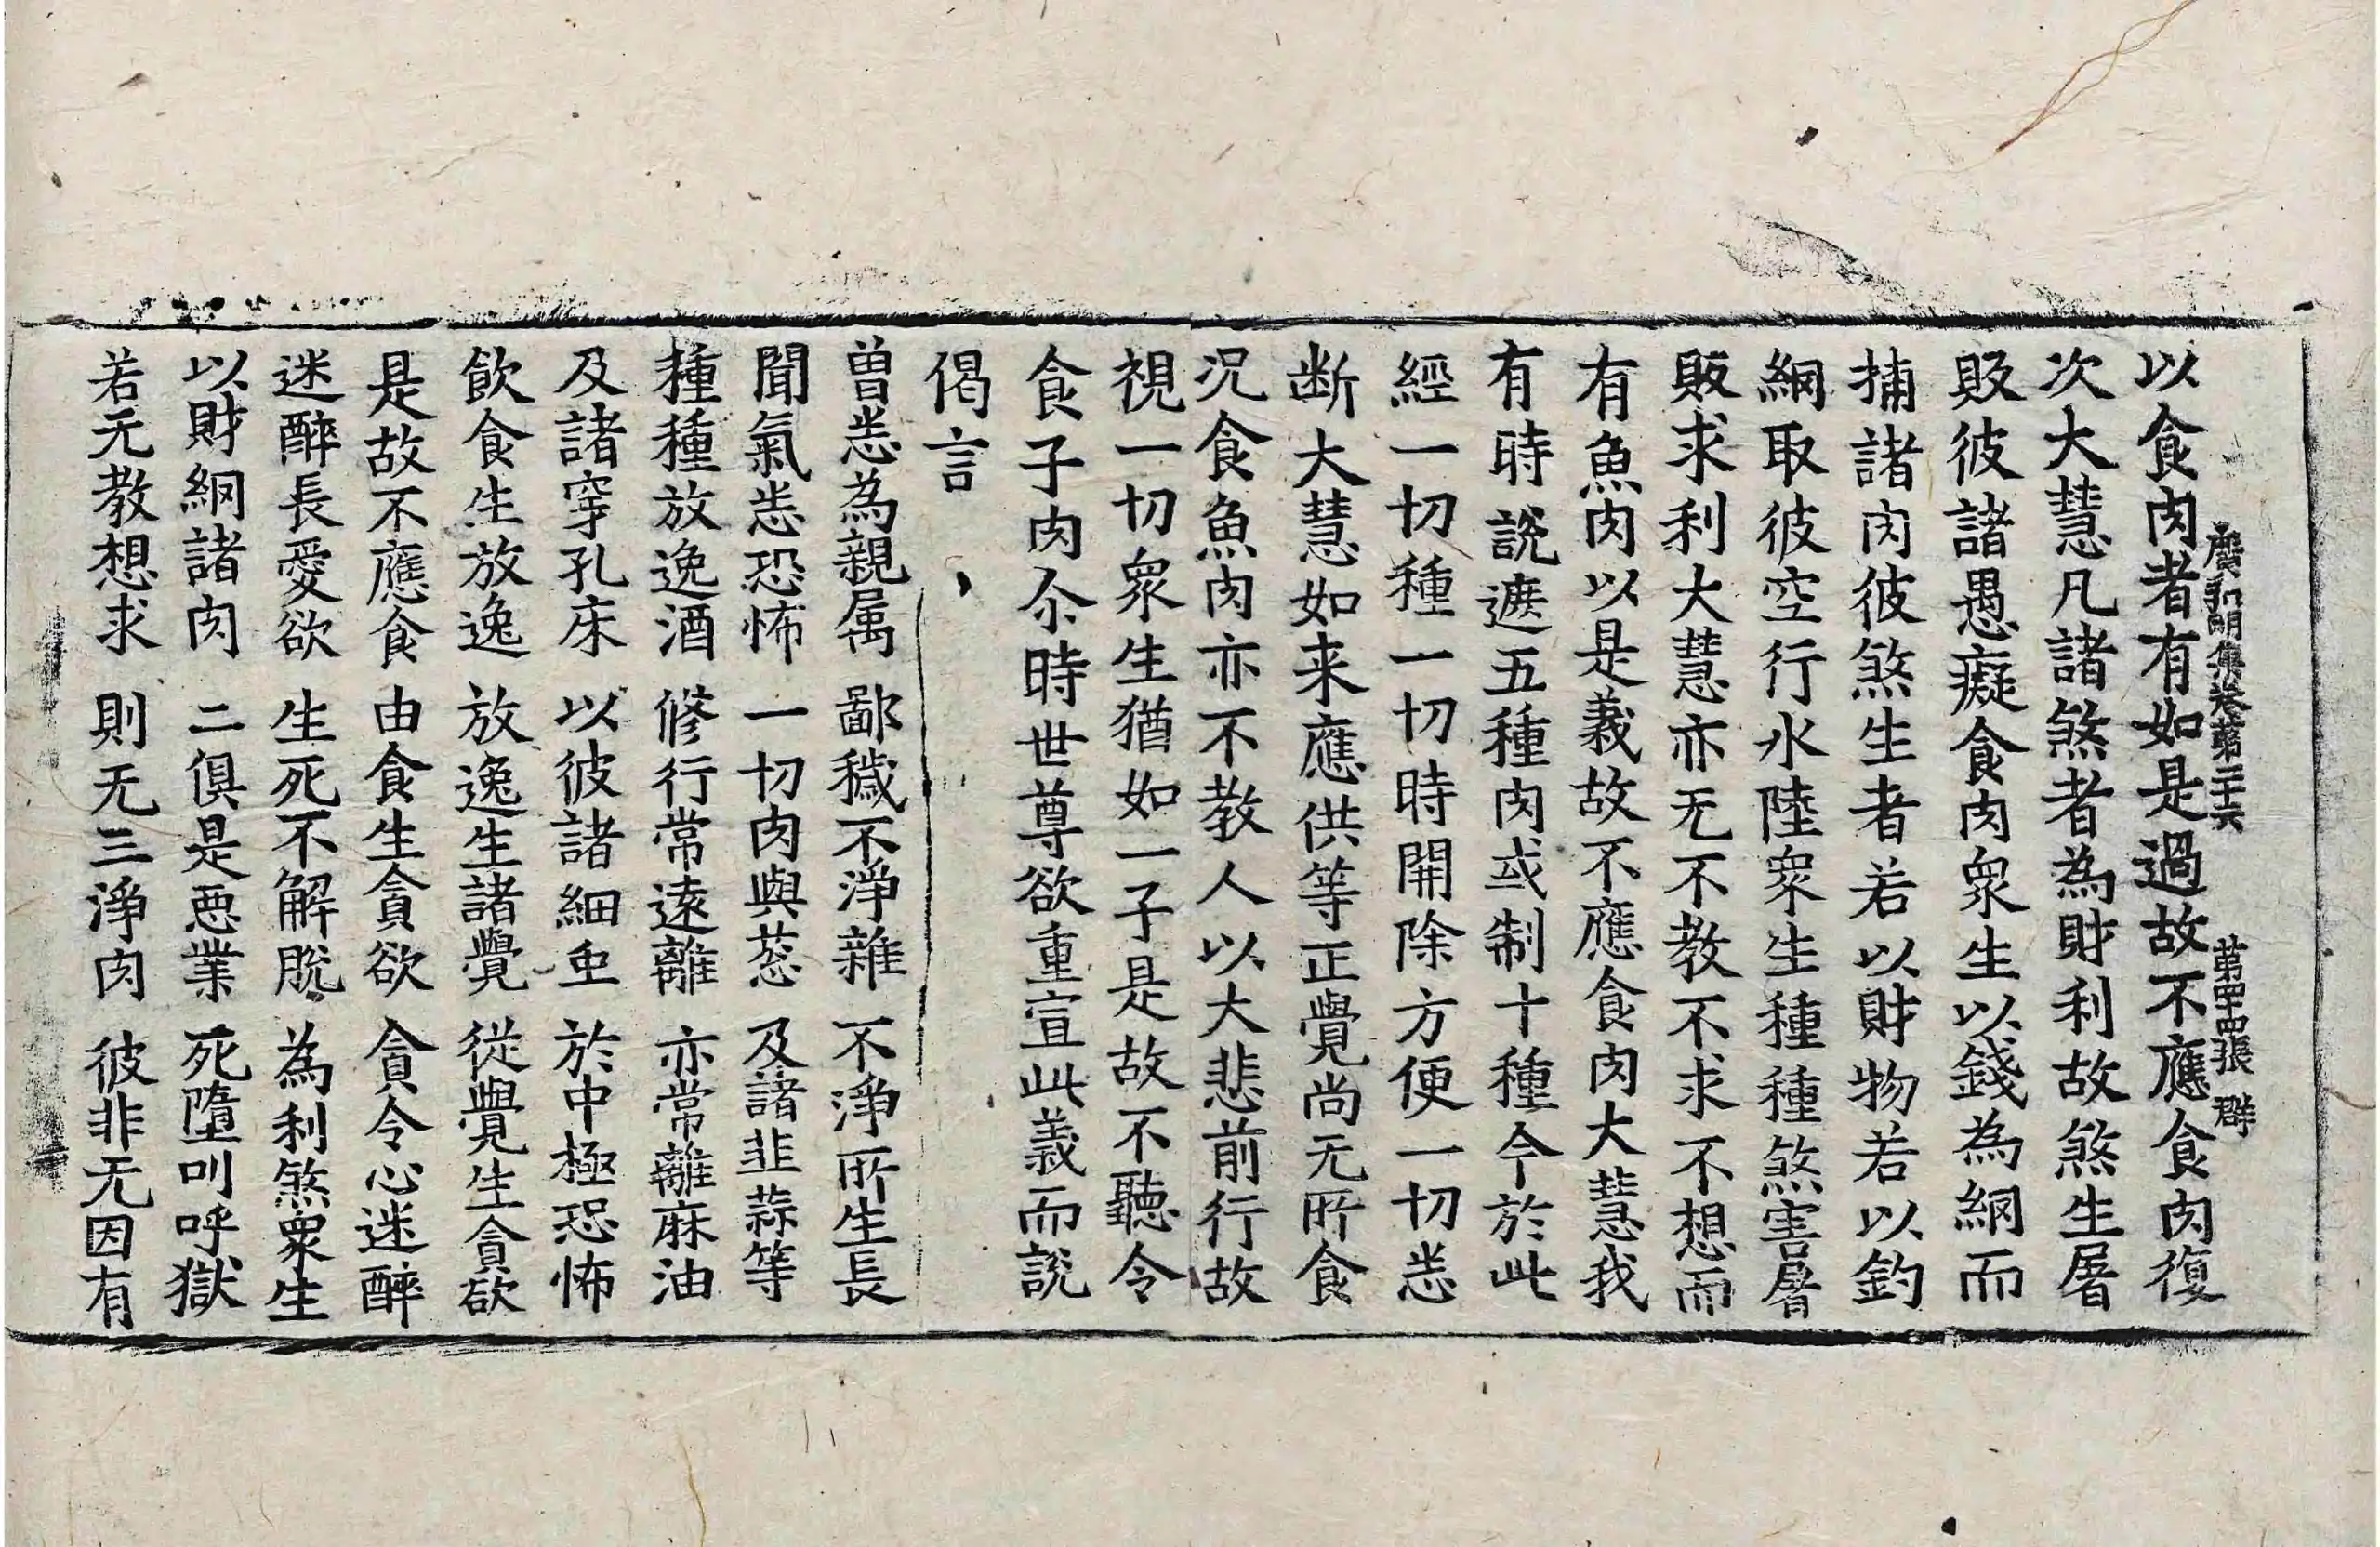 廣弘明集卷第二十六　第四十四張　群
以食肉者有如是過故不應食肉復
次大慧凡諸煞者為財利故煞生屠
販彼諸愚癡食肉衆生以錢為網而
捕諸肉彼煞生者若以財物若以釣
網取彼空行水陸衆生種種煞害屠
販求利大慧亦无不教不求不想而
有魚肉以是義故不應食肉大慧我
有時說遮五種肉或制十種今於此
經一切種一切時開除方便一切悉
断大慧如来應供等正覺尚无所食
況食魚肉亦不教人以大悲前行故
視一切衆生猶如一子是故不聽令
食子肉尒時世尊欲重宣此義而說
偈言
曽悉為親属　鄙穢不淨雜　不淨所生長
聞氣悉恐怖　一切肉與葱　及諸韭蒜等
種種放逸酒　修行常遠離　亦常離麻油
及諸穿孔床　以彼諸細虫　於中極恐怖
飲食生放逸　放逸生諸覺　從覺生貪欲
是故不應食　由食生貪欲　貪令心迷醉
迷醉長愛欲　生死不解脫　為利煞衆生
以財網諸肉　二俱是惡業　死墮叫呼獄
若无教想求　則无三淨肉　彼非无因有